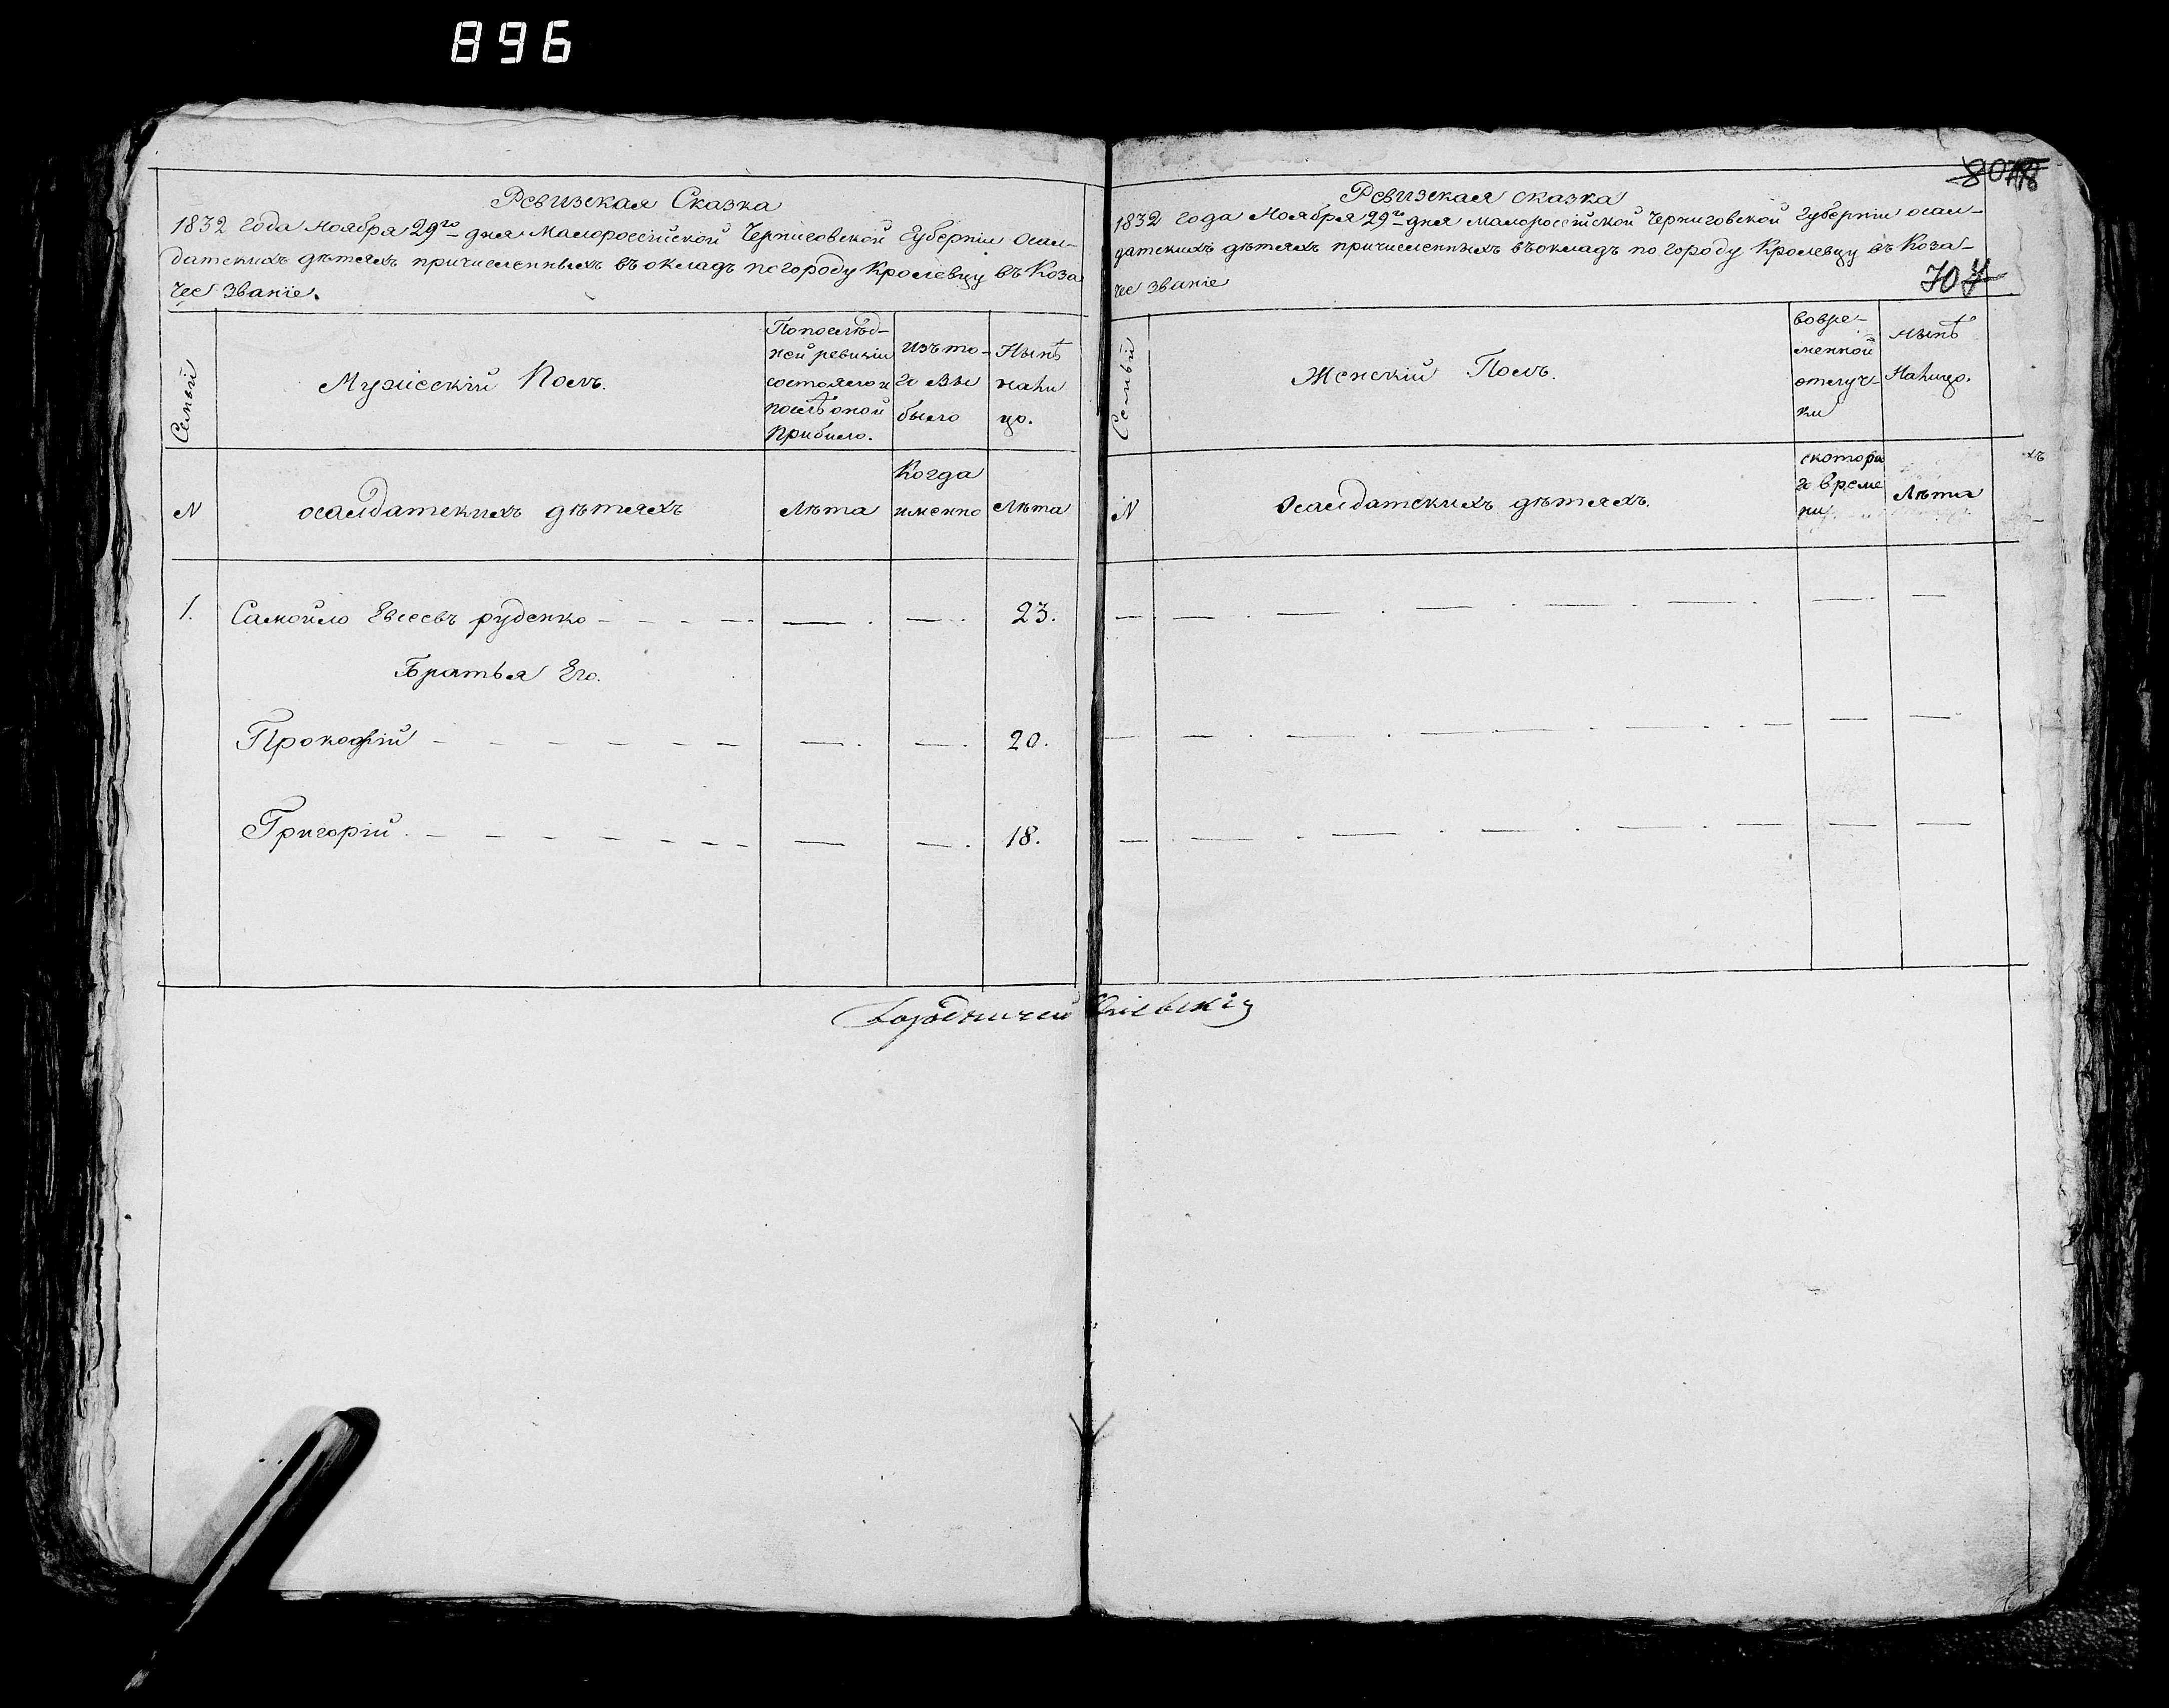 896
Ревизская Сказка
1832 года Ноября 29го дня Малороссійской Черниговской Губерніи осал-
датскихъ дѣтяхъ причисленныхъ въ окладъ по городу Кролевцу въ Коза
чее званіе.
Семьи
Мужескій Полъ.
По послѣд-
ней ревизіи
состояло и
послѣ оной
прибыло.
изъ то-
го вы
было
Нынѣ
нали
цо.
N
осалдатскихъ дѣтяхъ
Лѣта
Когда
именно
Лѣта
1. Самойло Евсеевъ руденко 23.
Братья Его.
Прокофій 20.
Григорій 18.
Ревизская сказка
1832 года Ноября 29го дня малороссійской Черниговской Губерніи осал-
датскихъ дѣтяхъ причисленныхъ въ окладъ по городу Кролевцу въ Коза-
чее званіе
Семьи
Женскій Полъ.
вовре-
менной
отлуч-
ки
Нынѣ
Налицо.
N
Осалдатскихъ дѣтяхъ.
скотора
го време
ни
Лѣта
Городничей